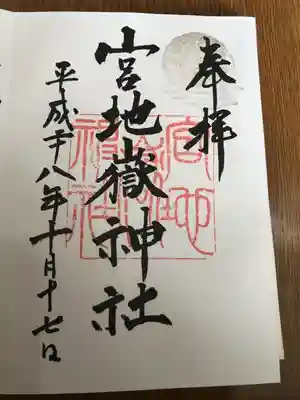 奉拝
宮地嶽神社
平成二十八年十月十七日